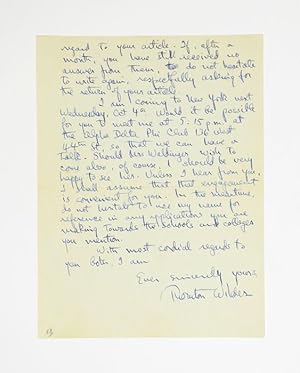 regard to your article. If, after a
month, you have still received no
answer from them, do not hesitate
to write again, respectfully asking for
the return of your article.
I am coming to New York next
Wednesday, Oct 4th. Would it be possible
for you to meet me at 5:15 p.m at
the Alpha Delta Phi Club 136 West
44th St, so that we can have a
talk. Should Mrs wish to
come also, of course I should be very
happy to see her. Unless I hear from you,
I shall assume that that engagement
is convenient for you. In the meantime,
do not hesitate to use my name for
reference in any applications you are
making towards the schools and colleges
you mention.
With most cordial regards to
you both, I am
Ever sincerely yours,
Thornton Wilder